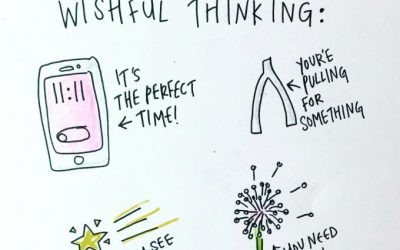 WISHFUL THINKING:
11:11
IT'S
THE PERFECT
TIME!
YOU'RE
PULLING
FOR
SOMETHING
SEE
YOU NEED